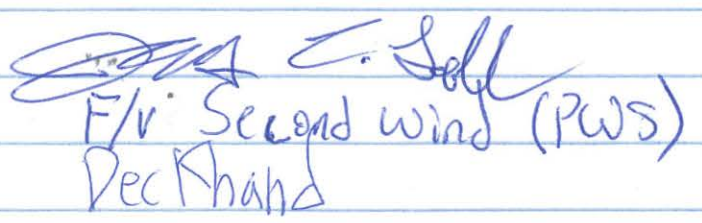 F/V Second Wind (PWS)
Deckhand